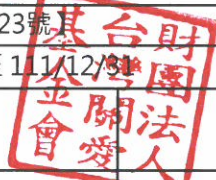 23號
111/12/31
財團法人
台灣關愛
基金會